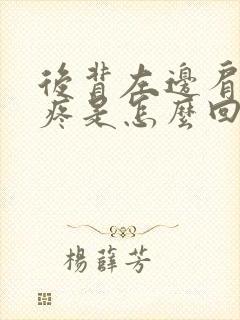 後背左邊肩
疼是怎麼回
楊薛芳